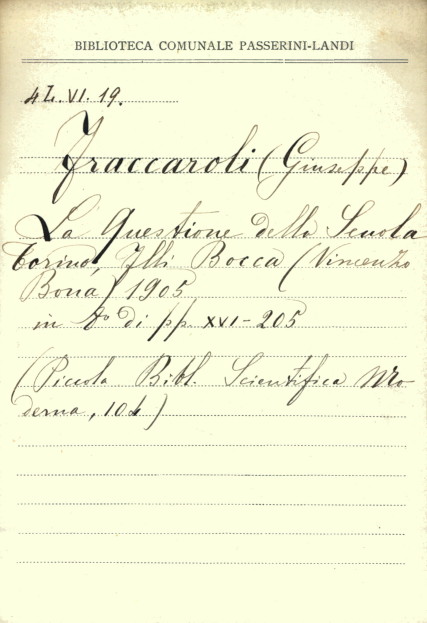 BIBLIOTECA COMUNALE PASSERINI-LANDI
4Z. VI. 19.
Fraccaroli (Giuseppe)
La Questione della Scuola
Torino, Flli Bocca (Vincenzo
Bona) 1905
in 8º di pp. XVI-205
(Piccola Bibl. Scientifica Mo
derna, 104)